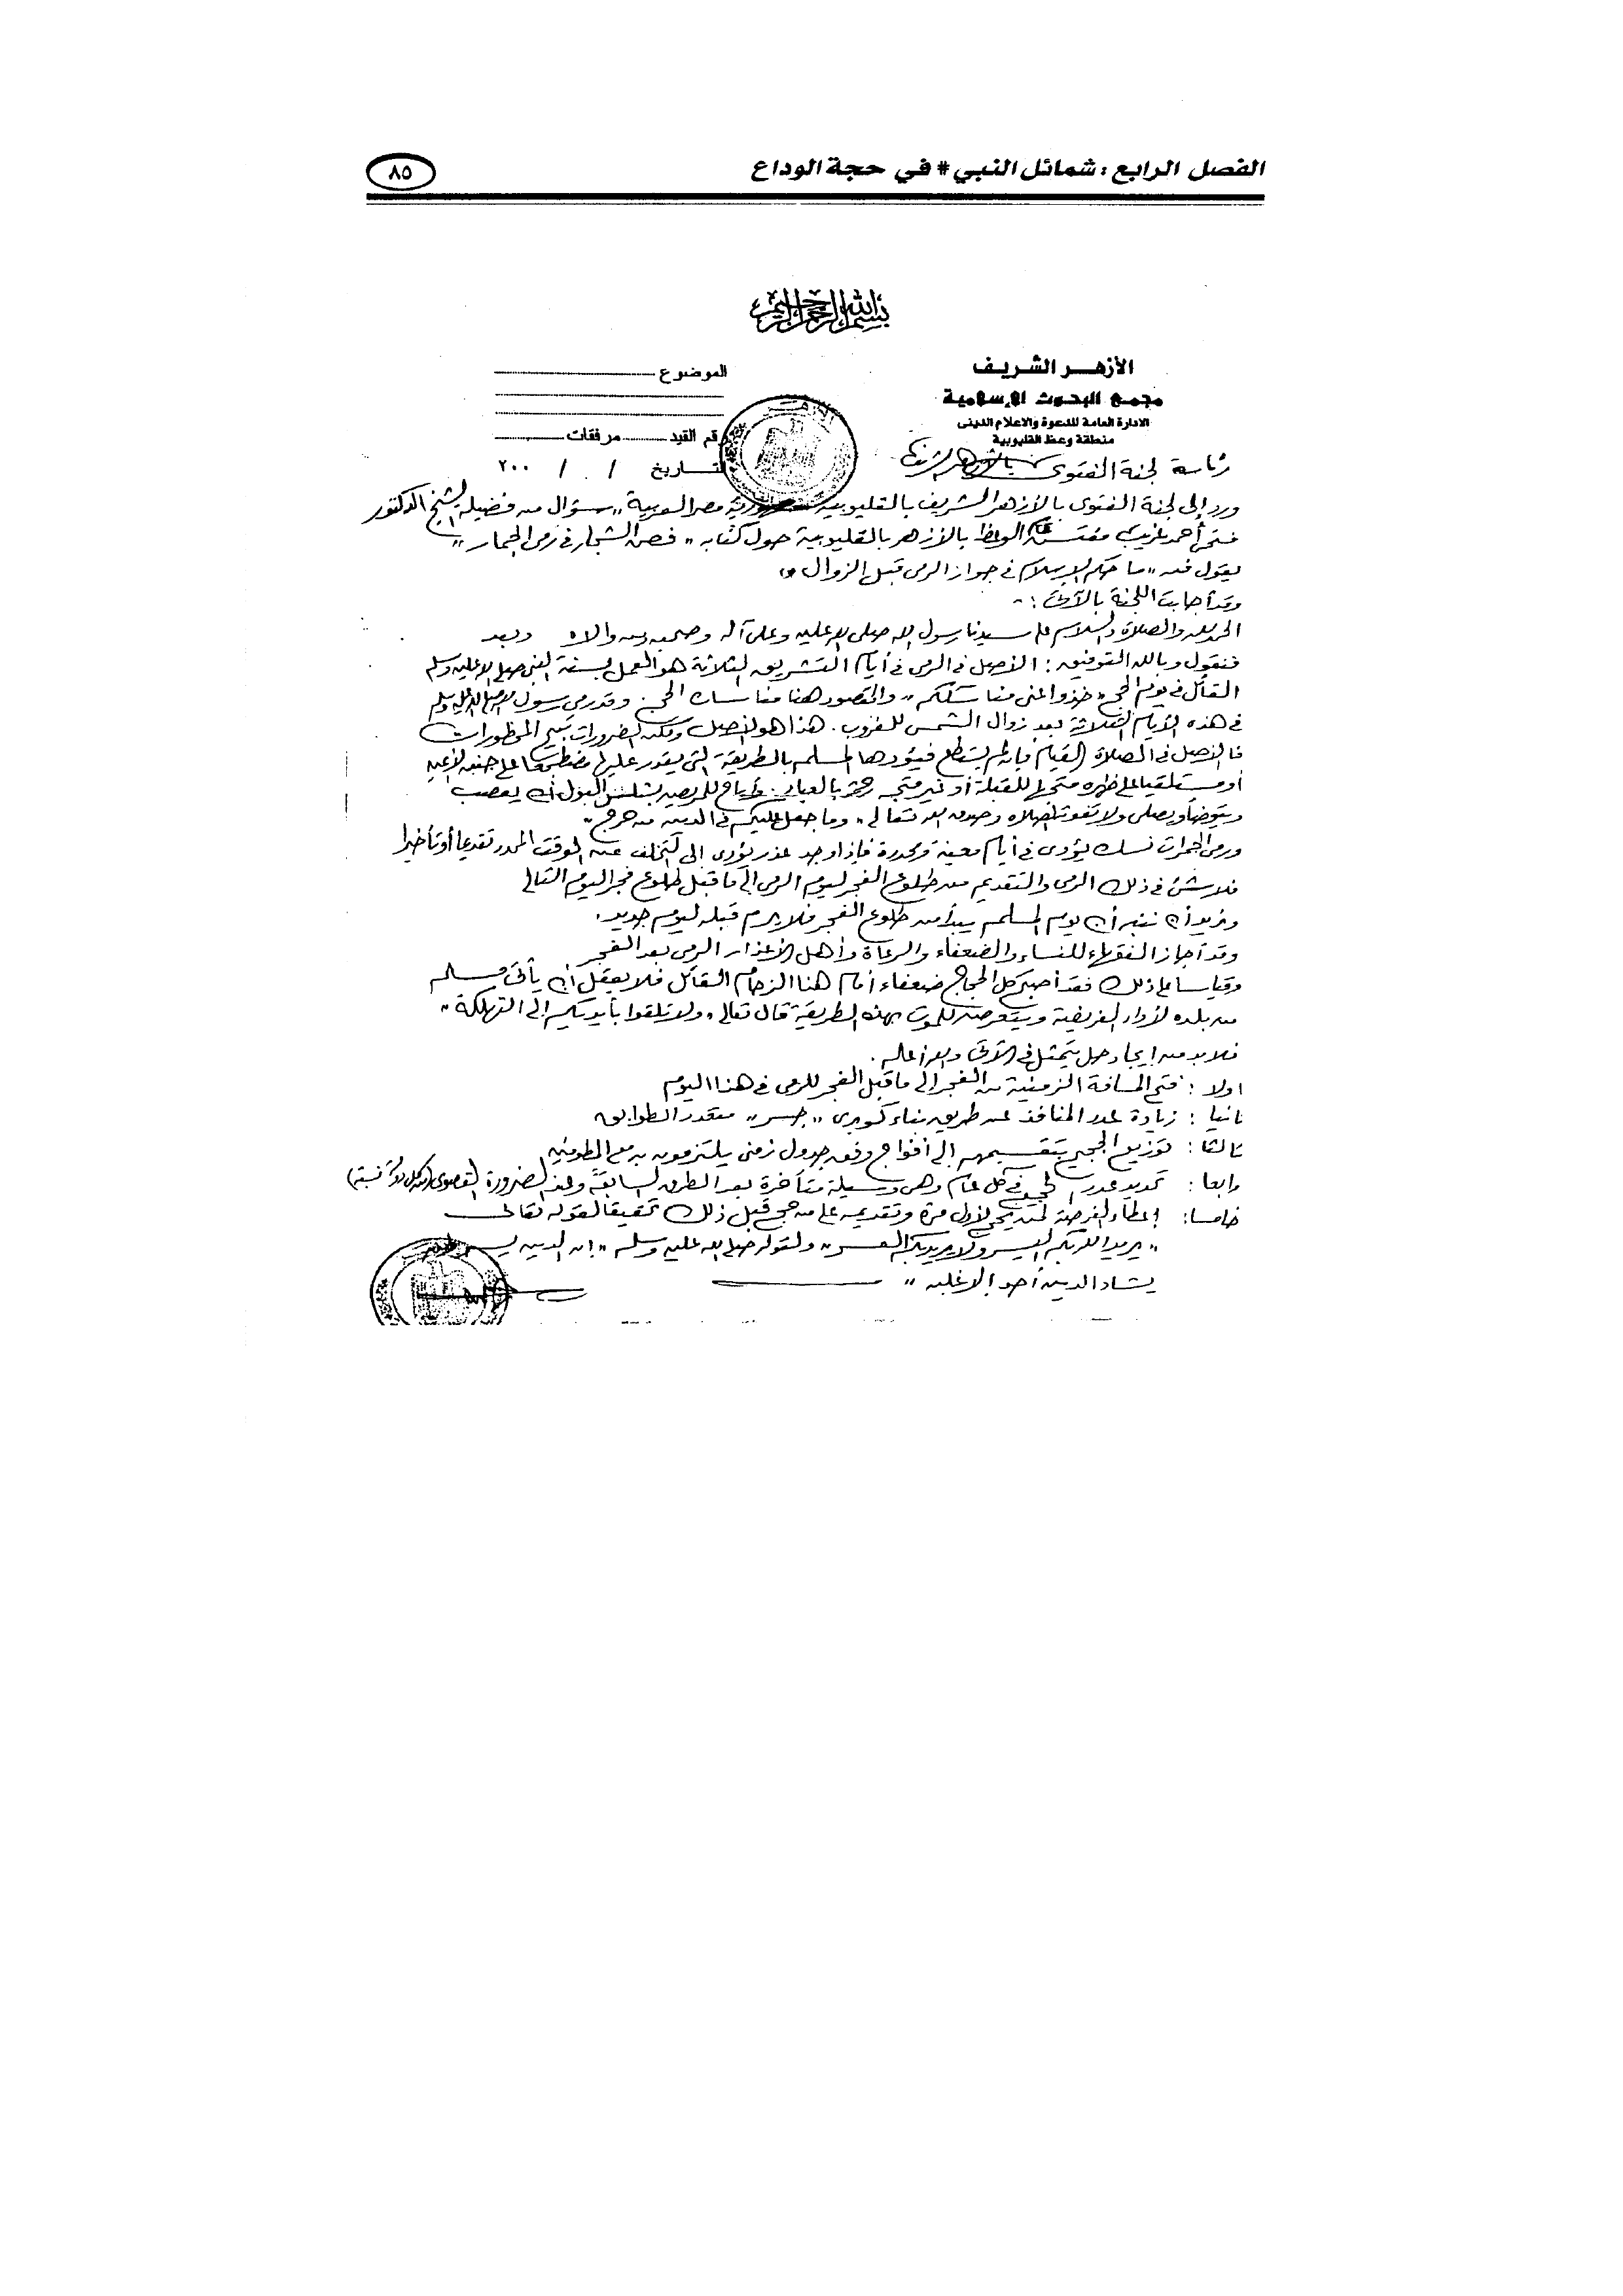 الفصل الرابع : شمائل النبي # في حجة الوداع
٨٥
بسم الله الرحمن الرحيم
الأزهــر الشريــف
مجمع البحوث الإسلامية
الادارة العامة للدعوة والاعلام الدينى
منطقة وعظ القليوبية
الموضوع
رقم القيد مرفقات
التـــاريخ / / ٢٠٠
رئاسة لجنة الفتوى بالأزهر الشريف
ورد إلى لجنة الفتوى بالأزهر الشريف بالقليوبية جمهورية مصر العربية ,, سؤال من فضيلة الشيخ الدكتور
فتحى أحمد غريب مفتش عام الوعظ بالأزهر بالقليوبية حول كتابه ,, فض الشجار فى رمى الجمار ,,
يقول فيه ,, ما حكم الإسلام فى جواز الرمى قبل الزوال ,,
وقد أجابت اللجنة بالآتى : -
الحمد لله والصلاة والسلام على سيدنا رسول الله صلى الله عليه وعلى آله وصحبه ومن والاه وبعد
فنقول وبالله التوفيق : الأصل فى الرمى فى أيام التشريق الثلاثة هو العمل بسنة النبى صلى الله عليه وسلم
القائل فى يوم الحج ,, خذوا عنى مناسككم ,, والمقصود هنا مناسك الحج وقد رمى رسول الله صلى الله عليه وسلم
فى هذه الأيام الثلاثة بعد زوال الشمس للغروب . هذا هو الأصل ولكن الضرورات تبيح المحظورات
فالأصل فى الصلاة القيام فإن لم يستطع فيؤديها المسلم بالطريقة التى يقدر عليها مضطجعا على جنبه الأيمن
أو مستلقيا على ظهره متجها للقبلة أو غير متجه رحمة بالعباد وأباح للمريض بسلس البول أن يعصب
ويتوضأ ويصلى ولا تفوته الصلاة وصدق الله تعالى ,, وما جعل عليكم فى الدين من حرج ,,
ورمى الجمرات نسك يؤدى فى أيام معينة ومحددة فإذا وجد عذر يؤدى إلى التخلف عن الوقت المحدد تقديما أو تأخيرا
فلا شئ فى ذلك الرمى والتقديم من طلوع الفجر ليوم الرمى إلى ما قبل طلوع فجر اليوم التالى
ونريد أن ننبه أن يوم المسلم يبدأ من طلوع الفجر فلا يرم قبله ليوم جديد .
وقد أجاز الفقهاء للنساء والضعفاء والرعاة وأهل الأعذار الرمى بعد الفجر
وقياسا على ذلك فقد أصبح كل الحجاج ضعفاء أمام هذا الزحام القاتل فلا يعقل أن يأتى مسلم
من بلده لأداء الفريضة ويتعرض للموت بهذه الطريقة قال تعالى ,, ولا تلقوا بأيديكم إلى التهلكة ,,
فلابد من ايجاد حل يتمثل فى الآتى والله أعلم .
اولا : فتح المسافة الزمنية من الفجر إلى ما قبل الفجر للرمى فى هذا اليوم
ثانيا : زيادة عدد المنافذ عن طريق بناء كوبرى ,, جسر ,, متعدد الطوابق
ثالثا : توزيع الحجيج بتقسيمهم إلى أفواج وفق جدول زمنى يلتزمون به مع المطوفين
رابعا : تحديد عدد الحجيج فى كل عام وهى وسيلة متأخرة بعد الطرق السابقة وعند الضرورة القصوى (لكل دولة نسبة)
خامسا : إعطاء الفرصة لمن يحج لأول مرة وتقديمه على من حج قبل ذلك تحقيقا لقوله تعالى
,, يريد الله بكم اليسر ولا يريد بكم العسر ,, ولقوله صلى الله عليه وسلم ,, إن الدين يسر ولن
يشاد الدين أحد إلا غلبه ,,